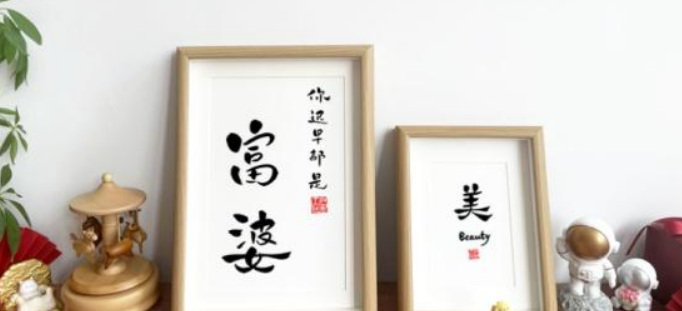 你迟早都是
富婆
美
Beauty